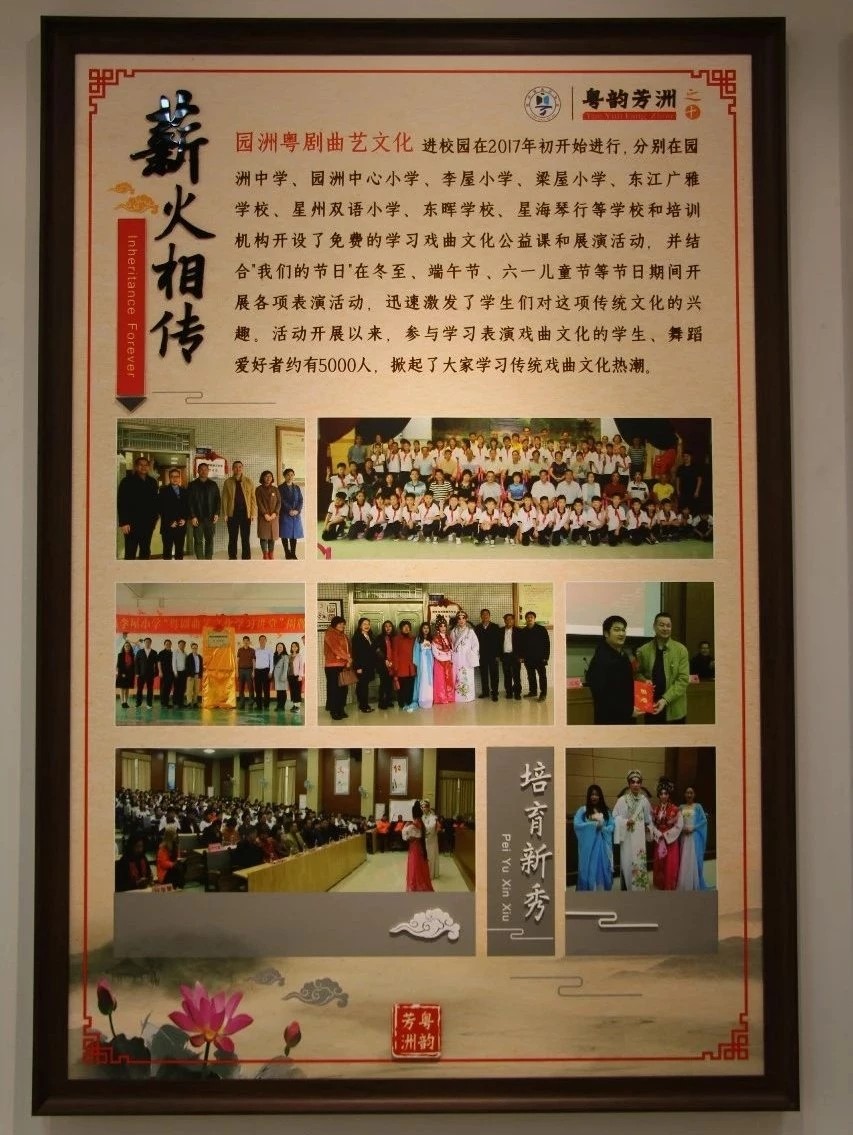 薪火相传
Inheritance Forever
粤韵芳洲之十
Yue Yun Fang Zhou
园洲粤剧曲艺文化进校园在2017年初开始进行,分别在园
洲中学、园洲中心小学、李屋小学、梁屋小学、东江广雅
学校、星州双语小学、东晖学校、星海琴行等学校和培训
机构开设了免费的学习戏曲文化公益课和展演活动,并结
合"我们的节日"在冬至、端午节、六一儿童节等节日期间开
展各项表演活动,迅速激发了学生们对这项传统文化的兴
趣。活动开展以来,参与学习表演戏曲文化的学生、舞蹈
爱好者约有5000人,掀起了大家学习传统戏曲文化热潮。
培育新秀
Pei Yu Xin Xiu
粤韵
芳洲